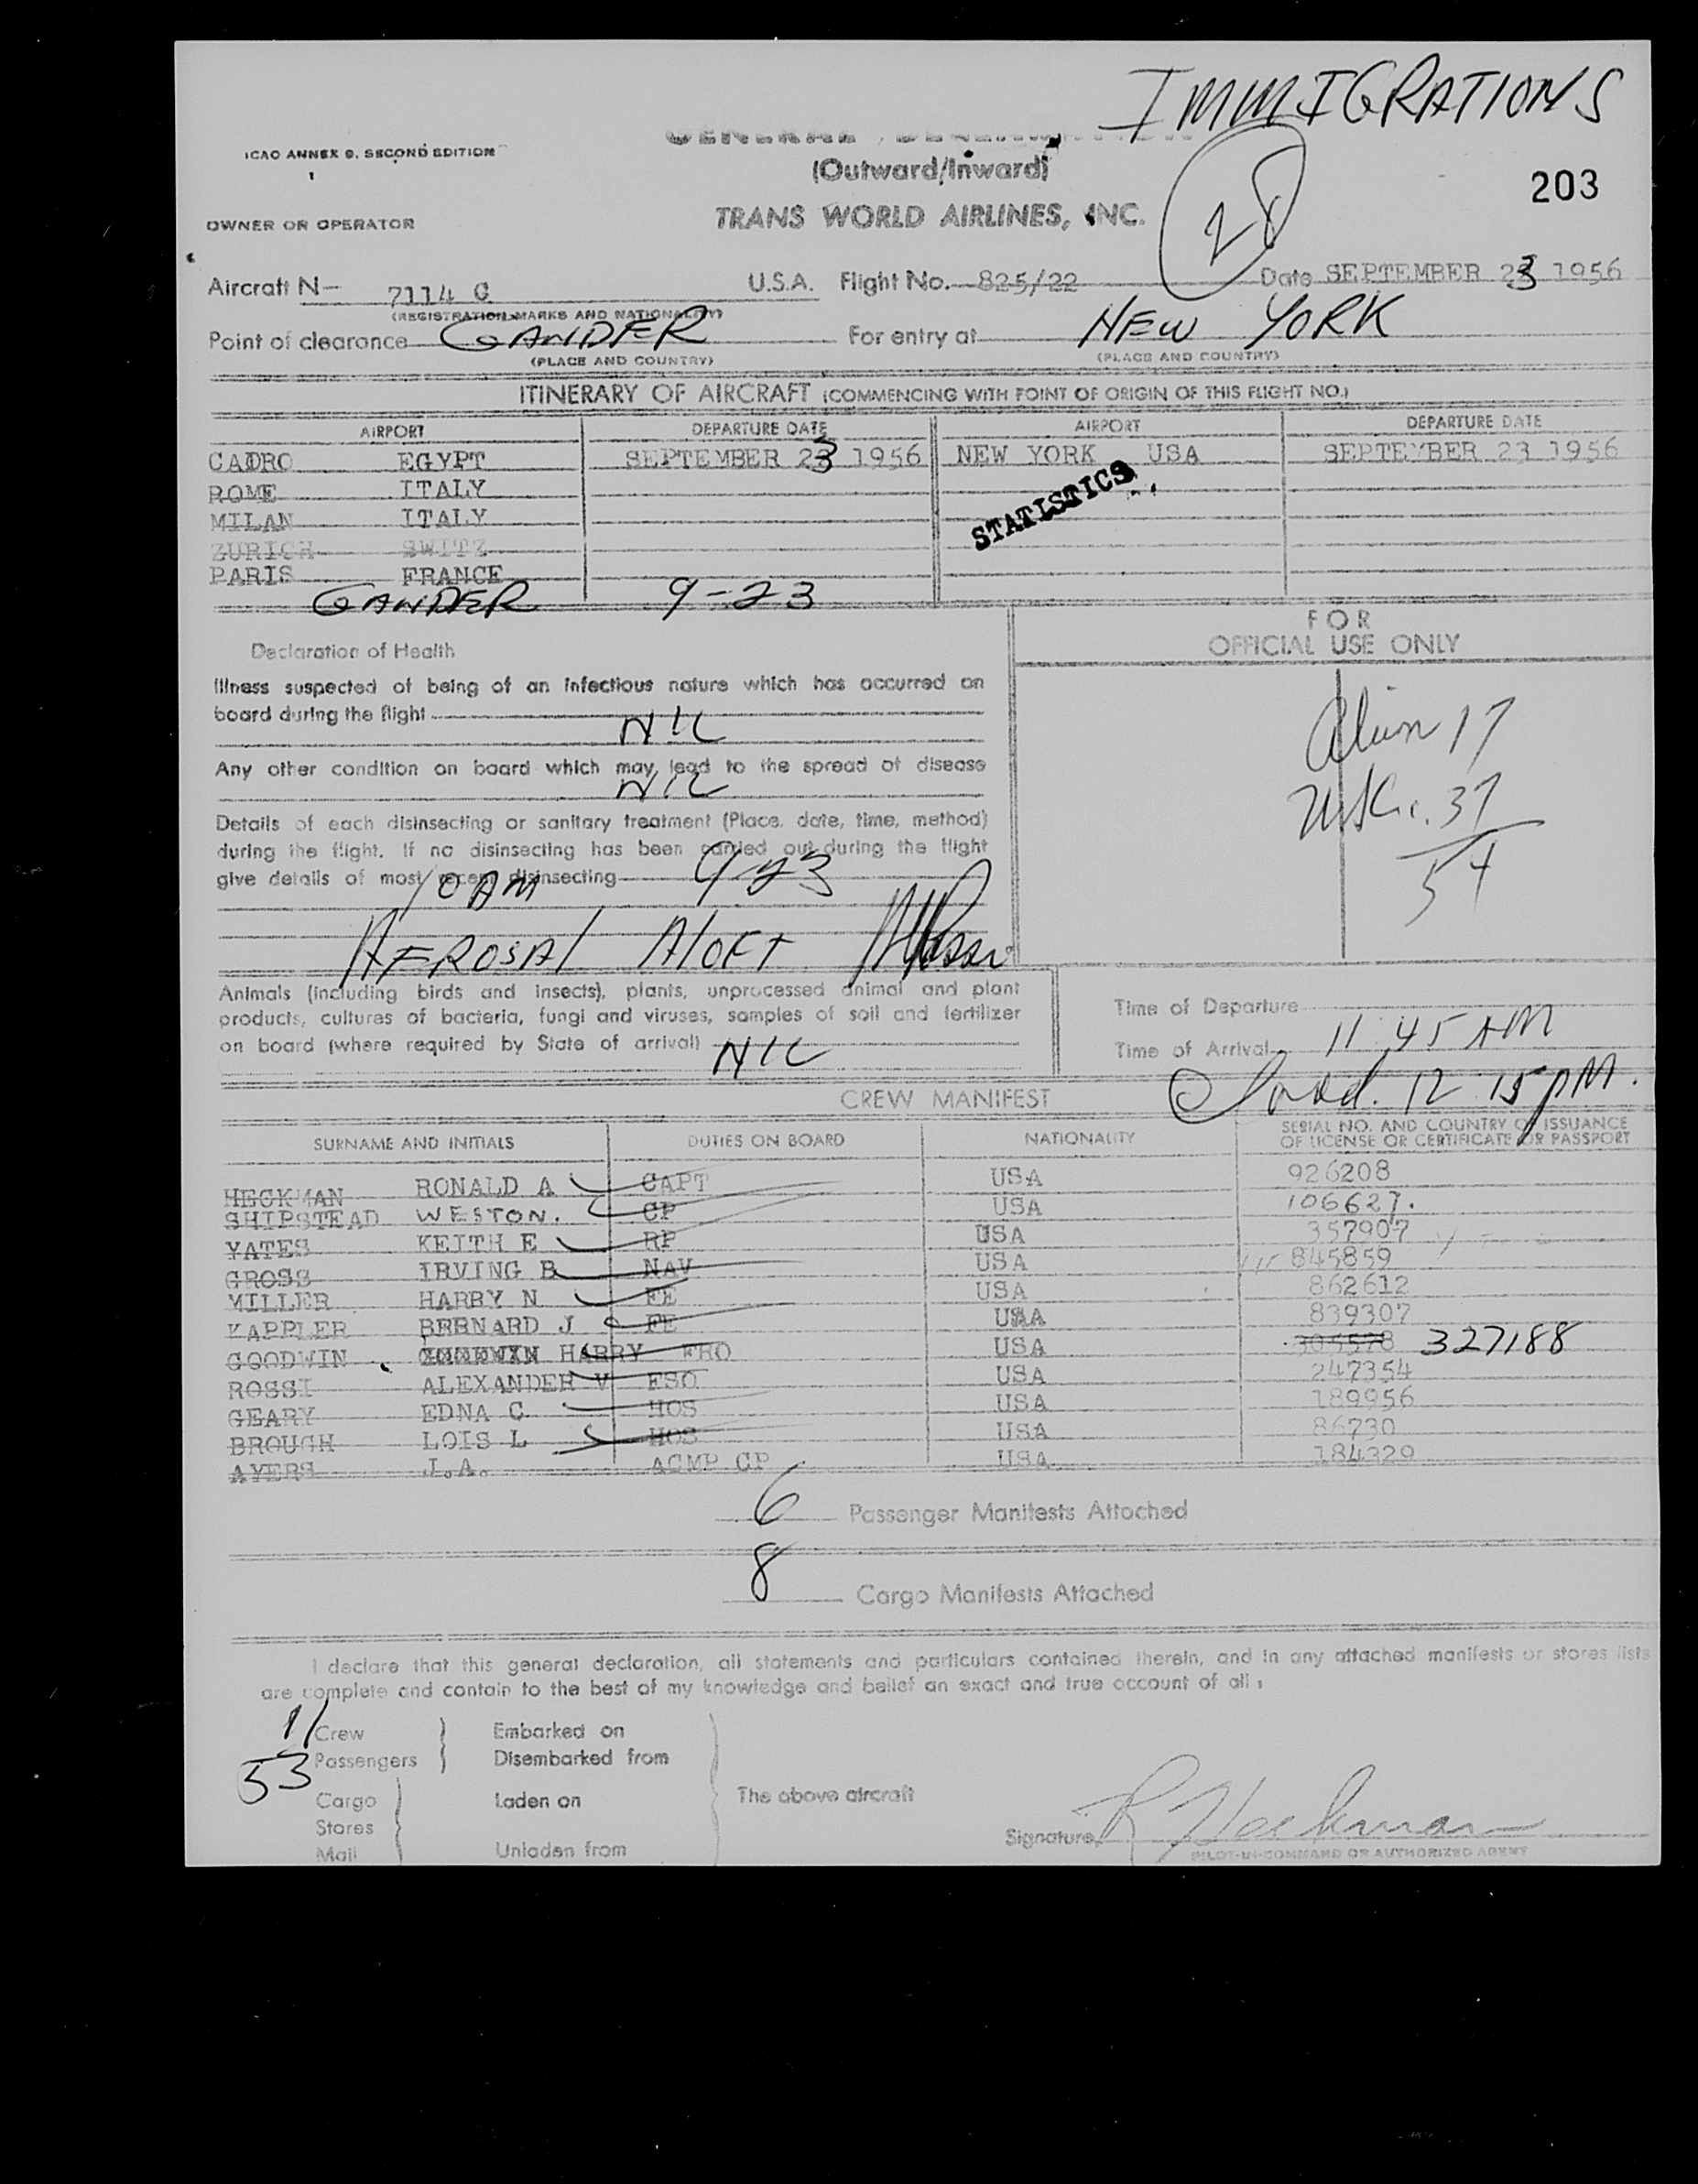 IMMIGRATIONS
ICAO ANNEX 9. SECOND EDITION
(Outward/Inward)
28
203
OWNER OR OPERATOR
TRANS WORLD AIRLINES, INC.
Aircraft N- 7114 C U.S.A. Flight No. 825/22 Date SEPTEMBER 23 1956
(REGISTRATION MARKS AND NATIONALITY)
Point of clearance GANDER For entry at NEW YORK
(PLACE AND COUNTRY) (PLACE AND COUNTRY)
ITINERARY OF AIRCRAFT (COMMENCING WITH POINT OF ORIGIN OF THIS FLIGHT NO.)
AIRPORT DEPARTURE DATE AIRPORT DEPARTURE DATE
CAIRO EGYPT SEPTEMBER 23 1956 NEW YORK USA SEPTEMBER 23 1956
ROME ITALY
MILAN ITALY
STATISTICS
ZURICH SWITZ
PARIS FRANCE
GANDER 9-23
FOR
OFFICIAL USE ONLY
Declaration of Health
Illness suspected of being of an infectious nature which has occurred on
board during the flight NIL
Any other condition on board which may lead to the spread of disease
NIL
Alien 17
37
54
Details of each disinsecting or sanitary treatment (Place, date, time, method)
during the flight. If no disinsecting has been carried out during the flight
give details of most recent disinsecting 9-23
10 AM
AEROSAl AlOFT
Animals (including birds and insects), plants, unprocessed animal and plant
products, cultures of bacteria, fungi and viruses, samples of soil and fertilizer
on board (where required by State of arrival) NIL
Time of Departure
Time of Arrival 11:45 AM
12:15 PM.
CREW MANIFEST
SURNAME AND INITIALS DUTIES ON BOARD NATIONALITY SERIAL NO. AND COUNTRY OF ISSUANCE
OF LICENSE OR CERTIFICATE OR PASSPORT
HECKMAN RONALD A CAPT USA 926208
SHIPSTEAD WESTON. CP USA 106627.
YATES KEITH E RP USA 357907
GROSS IRVING B NAV USA 845859
MILLER HARRY N FE USA 862612
KAPPLER BERNARD J FE USA 839307
GOODWIN HARRY FRO USA 305578 327188
ROSSI ALEXANDER V FSO USA 247354
GEARY EDNA C HOS USA 189956
BROUGH LOIS L HOS USA 86730
AYERS J.A. ACMP CP USA 184329
6 Passenger Manifests Attached
8 Cargo Manifests Attached
I declare that this general declaration, all statements and particulars contained therein, and in any attached manifests or stores lists
are complete and contain to the best of my knowledge and belief an exact and true account of all :
11 Crew Embarked on
53 Passengers Disembarked from
Cargo Laden on The above aircraft
Stores
Mail Unladen from
Signature R Heckman
PILOT-IN-COMMAND OR AUTHORIZED AGENT